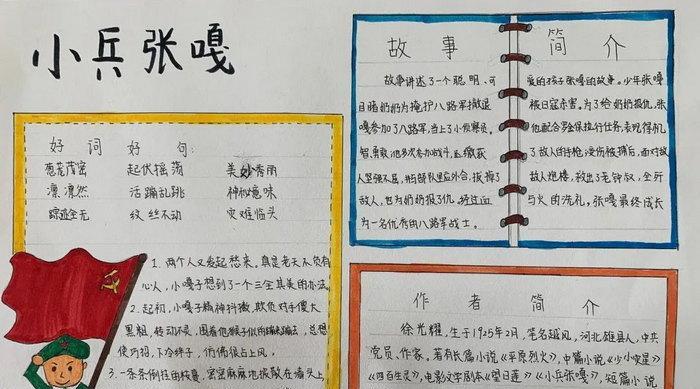 小兵张嘎
好词好句:
葱茏茂密 起伏摇荡 美妙秀丽
凛凛然 活蹦乱跳 神秘意味
踪迹全无 纹丝不动 灾难临头
1. 两个人又发起愁来。真是老天不负有
心人,小嘎子想到了一个三全其美的办法。
2. 起初,小嘎子精神抖擞,欺负对手傻大
黑粗,转动不灵,围着他猴子似的蹦来蹦去,总想
使巧招,下冷绊子,仿佛很占上风,
3. 一条条倒挂的枝蔓,密密麻麻地
故事简介
故事讲述了一个聪明、可爱的孩子张嘎的故事。少年张嘎
目睹奶奶为掩护八路军撤退被日寇杀害。为了给奶奶报仇,张
嘎参加了八路军,当上了小侦察员。他配合罗金保执行任务,表现得机
智勇敢,他多次参加战斗,缴获了敌人的手枪,受伤被捕后,面对敌
人坚强不屈,与部队里应外合,拔掉了敌人炮楼,救出了老钟叔,全歼
敌人,也为奶奶报了仇。经过血与火的洗礼,张嘎最终成长
为一名优秀的八路军战士。
作者简介
徐光耀,生于1925年2月,笔名越风,河北雄县人,中共
党员、作家。著有长篇小说《平原烈火》,中篇小说《少小灾星》
《四百生灵》,电影文学剧本《望日莲》《小兵张嘎》,短篇小说